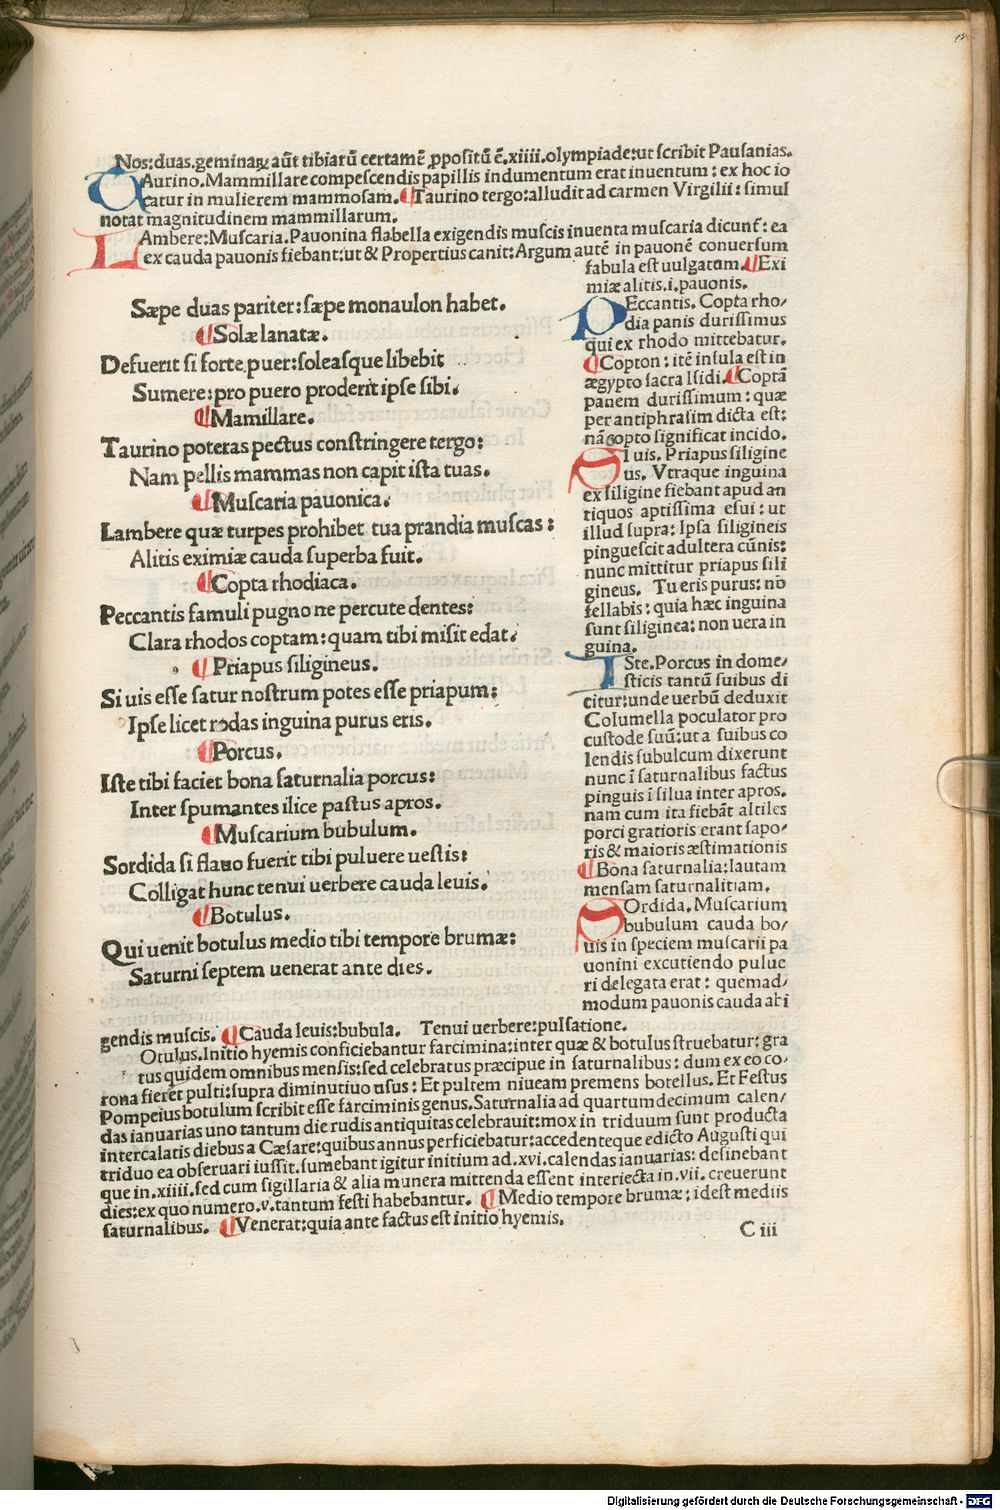 Nos:duas.geminaꝝ aũt tibiarũ certamẽ ꝓpositũ ẽ.xiiii.olympiade:ut scribit Pausanias.
TAurino.Mammillare compescendis papillis indumentum erat inuentum: ex hoc io
catur in mulierem mammosam. ¶Taurino tergo:alludit ad carmen Virgilii: simul
notat magnitudinem mammillarum.
LAmbere:Muscaria.Pauonina flabella exigendis muscis inuenta muscaria dicunt᷑: ea
ex cauda pauonis fiebant:ut & Propertius canit: Argum autẽ in pauonẽ conuersum
fabula est uulgatam. ¶Exi
miæ alitis.i.pauonis.
Sæpe duas pariter: sæpe monaulon habet.
¶Solæ lanatæ.
Defuerit si forte puer:soleasque libebit
Sumere: pro puero proderit ipse sibi.
¶Mamillare.
Taurino poteras pectus constringere tergo:
Nam pellis mammas non capit ista tuas.
¶Muscaria pauonica.
Lambere quæ turpes prohibet tua prandia muscas:
Alitis eximiæ cauda superba fuit.
¶Copta rhodiaca.
Peccantis famuli pugno ne percute dentes:
Clara rhodos coptam: quam tibi misit edat.
¶Priapus siligineus.
Si uis esse satur nostrum potes esse priapum:
Ipse licet rodas inguina purus eris.
¶Porcus.
Iste tibi faciet bona saturnalia porcus:
Inter spumantes ilice pastus apros.
¶Muscarium bubulum.
Sordida si flauo fuerit tibi puluere uestis:
Colligat hunc tenui uerbere cauda leuis.
¶Botulus.
Qui uenit botulus medio tibi tempore brumæ:
Saturni septem uenerat ante dies.
PEccantis. Copta rho/
dia panis durissimus
qui ex rhodo mittebatur.
¶Copton: itẽ insula est in
ægypto sacra Isidi. ¶Coptã
panem durissimum: quæ
per antiphrasim dicta est:
nã copto significat incido.
SI uis. Priapus siligine
us. Vtraque inguina
ex siligine fiebant apud an
tiquos aptissima esui: ut
illud supra: Ipsa siligineis
pinguescit adultera cũnis:
nunc mittitur priapus sili
gineus. Tu eris purus: nõ
fellabis: quia hæc inguina
sunt siliginea: non uera in
guina.
ISte. Porcus in dome/
sticis tantũ suibus di
citur: unde uerbũ deduxit
Columella poculator pro
custode suũ: ut a suibus co
lendis subulcum dixerunt
nunc ĩ saturnalibus factus
pinguis ĩ silua inter apros.
nam cum ita fiebãt altiles
porci gratioris erant sapo/
ris & maioris æstimationis
¶Bona saturnalia: lautam
mensam saturnalitiam.
SOrdida. Muscarium
bubulum cauda bo/
uis in speciem muscarii pa
uonini excutiendo pulue
ri delegata erat: quemad/
modum pauonis cauda abi
gendis muscis. ¶Cauda leuis: bubula. Tenui uerbere: pulsatione.
Otulus. Initio hyemis conficiebantur farcimina: inter quæ & botulus struebatur: gra
tus quidem omnibus mensis: sed celebratus præcipue in saturnalibus: dum ex eo co/
rona fieret pulti: supra diminutiuo usus: Et pultem niueam premens botellus. Et Festus
Pompeius botulum scribit esse farciminis genus. Saturnalia ad quartumdecimum calen/
das ianuarias uno tantum die rudis antiquitas celebrauit: mox in triduum sunt producta
intercalatis diebus a Cæsare: quibus annus perficiebatur: accedenteque edicto Augusti qui
triduo ea obseruari iussit. sumebant igitur initium ad.xvi.calendas ianuarias: desinebant
que in.xiiii.sed cum sigillaria & alia munera mittenda essent interiecta in.vii. creuerunt
dies: ex quo numero.v.tantum festi habebantur. ¶Medio tempore brumæ: idest mediis
saturnalibus. ¶Venerat: quia ante factus est initio hyemis.
C iii
Digitalisierung gefördert durch die Deutsche Forschungsgemeinschaft - DFG